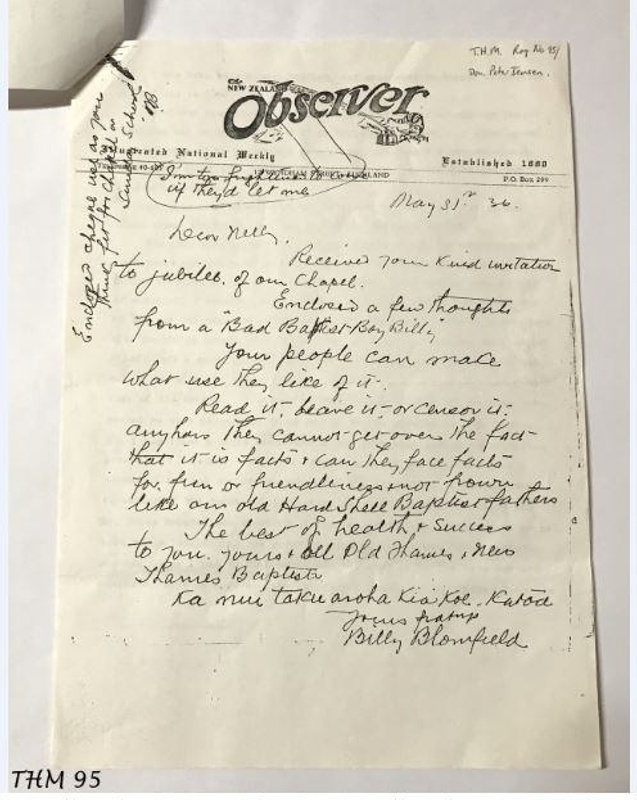 T.H.M. Reg No 95/
Don. Peter Jensen.
THE NEW ZEALAND
Observer
Illustrated National Weekly
Established 1880
TELEPHONE AUCKLAND
P.O. Box 299
I'm too
if they'd let me
May 31st 36.
Dear Nelly,
Received your kind invitation
to jubilee of our Chapel.
Enclosed a few thoughts
from a "Bad Baptist Boy Billy"
Your people can make
what use they like of it.
Read it, leave it, or censor it.
anyhow they cannot get over the fact
that it is facts & can they face facts
for fun or friendliness & not frown
like our old Hard Shell Baptist fathers
The best of health & success
to you. yours & all Old Thames & New
Thames Baptists
Ka nui taku aroha Kia Koe. Katoa
Yours
Billy Blomfield
Enclosed cheque use as you
think fit for Chapel or
Sunday School
BB
THM 95